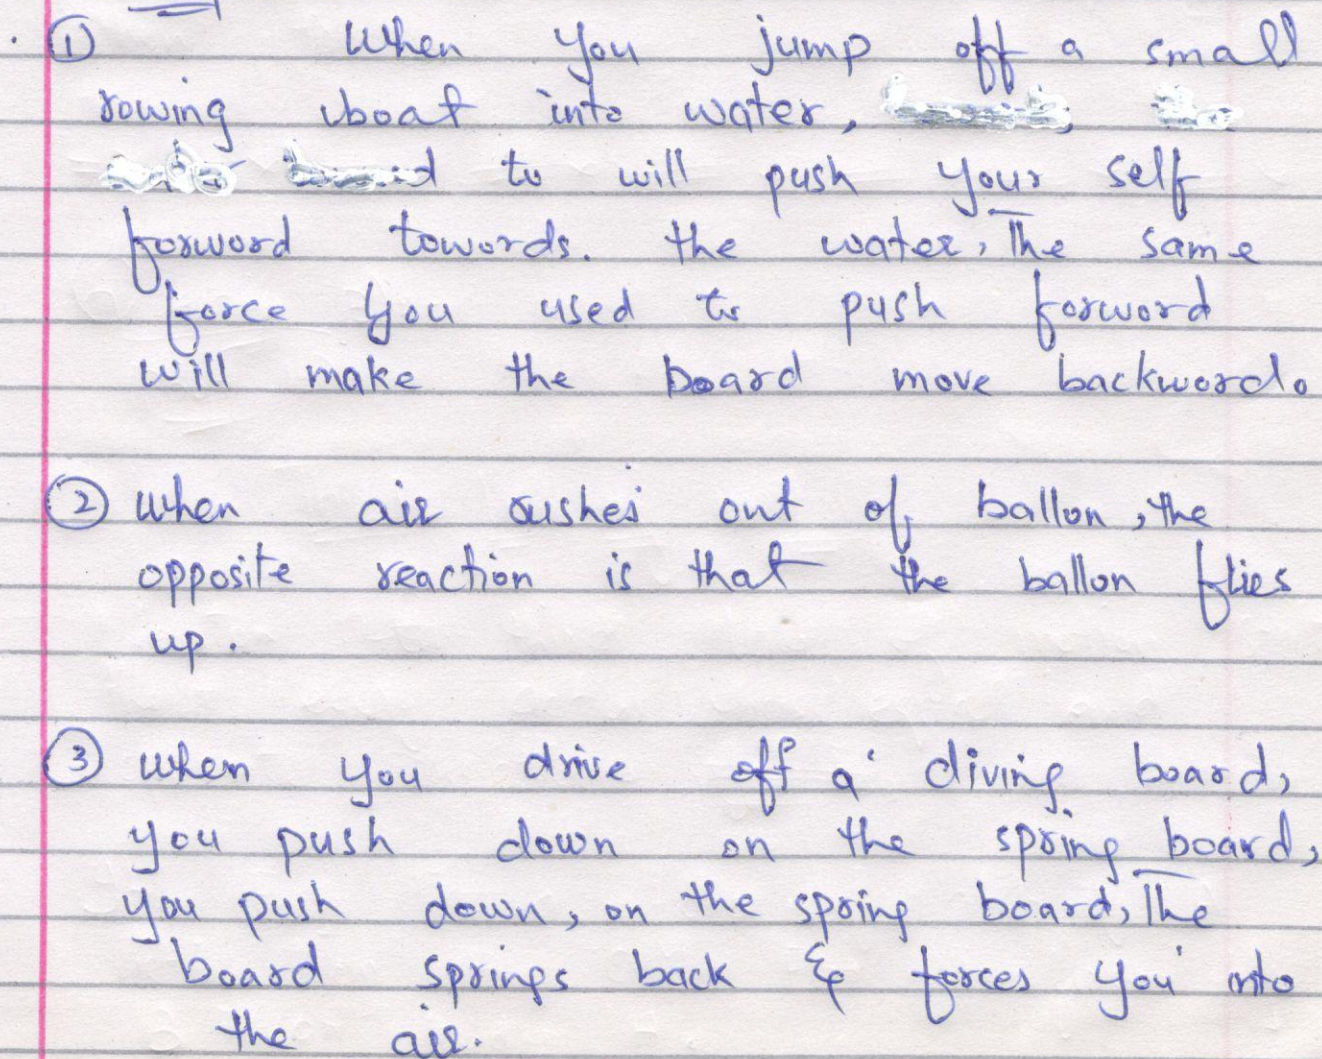 ① When you jump off a small
rowing boat into water,
to will push your self
forword towords. the water, The same
force you used to push forword
will make the board move backword.
② when air rushes out of ballon, the
opposite reaction is that the ballon flies
up.
③ when you drive off a diving board,
you push down on the spring board,
you push down, on the spring board, The
board springs back & forces you into
the air.